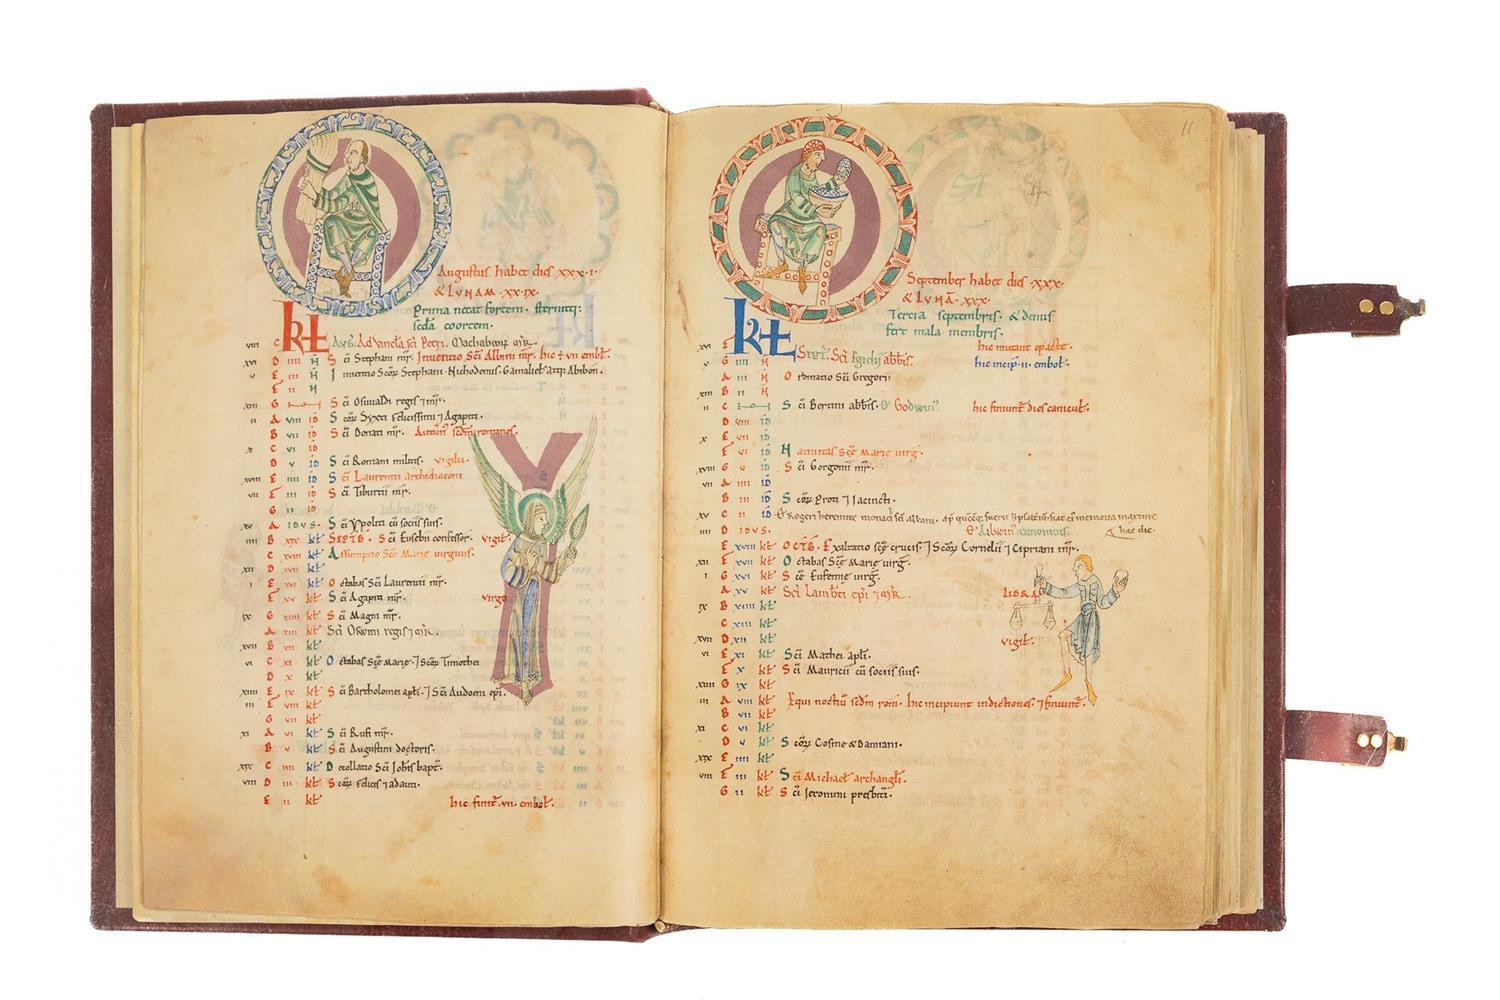 Augustus habet dies xxx·i·
& LUNAM·xx·ix·
Prima necat fortem· sternitq;
scda coortem·
KL AUG· Ad Vincla sci Petri. Machabeorum
viii C
xvi D iiii N S ci Stephani mr. Inventio Sci Albini mr. hic
v E iii N Inventio Scor Stephani· Nichodemi· Gamaliel atq; Abibon·
F ii N
xiii G S ci Oswaldi regis 7 mr.
ii A viii ID S cor Syxti Felicissimi 7 Agapiti·
B vii ID S ci Donati mr. Autun' sedm romanos.
x C vi ID
D v ID S ci Romani militis. vigilia·
xviii E iiii ID S ci Laurentii archidiaconi
vii F iii ID S ci Tiburtii mr.
G ii ID
xv A IDUS· S ci Ypoliti cu sociis suis.
iiii B xix kl SEPTB· S ci Eusebii confessor. vigil
C xviii kl Assumptio Sce Marie virginis.
xii D xvii kl
i E xvi kl O ctabas Sci Laurentii mr.
F xv kl S ci Agapiti mr. virgo
ix G xiiii kl S ci Magni mr.
A xiii kl Sci Oswini regis 7 mr.
xvii B xii kl
vi C xi kl O ctabas Sce Marie· 7 Scor Timothei
D x kl
xiiii E viiii kl S ci Bartholomei apli· 7 Sci Audoeni epi.
iii F viii kl
G vii kl
xi A vi kl S ci Rufi mr.
B v kl S ci Augustini doctoris.
xix C iiii kl D ecollatio Sci Johis bapt.
viii D iii kl S cor Felicis 7 adaucti·
E ii kl hic finit· vii· embol·
11
September habet dies ·xxx·
& LUNA·xxx·
Tercia septembris· & denus
fert mala membris·
hic mutant epacte·
KL SEPT· Sci Egidii abbis.
xvi F
v G iiii N hic incip· ii· embol·
A iii N O rdinatio Sci Gregorii
xiii B ii N
ii C S ci Bertini abbis· O' Godwin' hic finiunt dies canicul·
D viii ID
x E vii ID
F vi ID N ativitas Sce Marie virg·
xviii G v ID S ci Gorgonii mr.
vii A iiii ID
B iii ID S cor Proti 7 Jacincti·
xv C ii ID O' Rogeri heremite monachi sci Albani·
iiii D IDUS· O' Ailwin' canonicus· hac die·
E xviii kl OCTB· Exaltatio sce crucis· 7 Scor Cornelii 7 Cipriani mr.
xii F xvii kl O ctabas Sce Marie virg·
i G xvi kl S ce Eufemie virg·
A xv kl Sci Lamberti epi 7 mr. LIBRA
ix B xiiii kl
C xiii kl
xvii D xii kl vigil·
vi E xi kl S ci Mathei apli.
F x kl S ci Mauricii cu sociis suis.
xiiii G ix kl
iii A viii kl Equi noctiu sedm rom· hic incipiunt indictiones· 7 finiunt·
B vii kl
xi C vi kl
D v kl S cor Cosme & Damiani·
xix E iiii kl
viii F iii kl S ci Michael archangli·
G ii kl S ci Jeronimi presbiti·